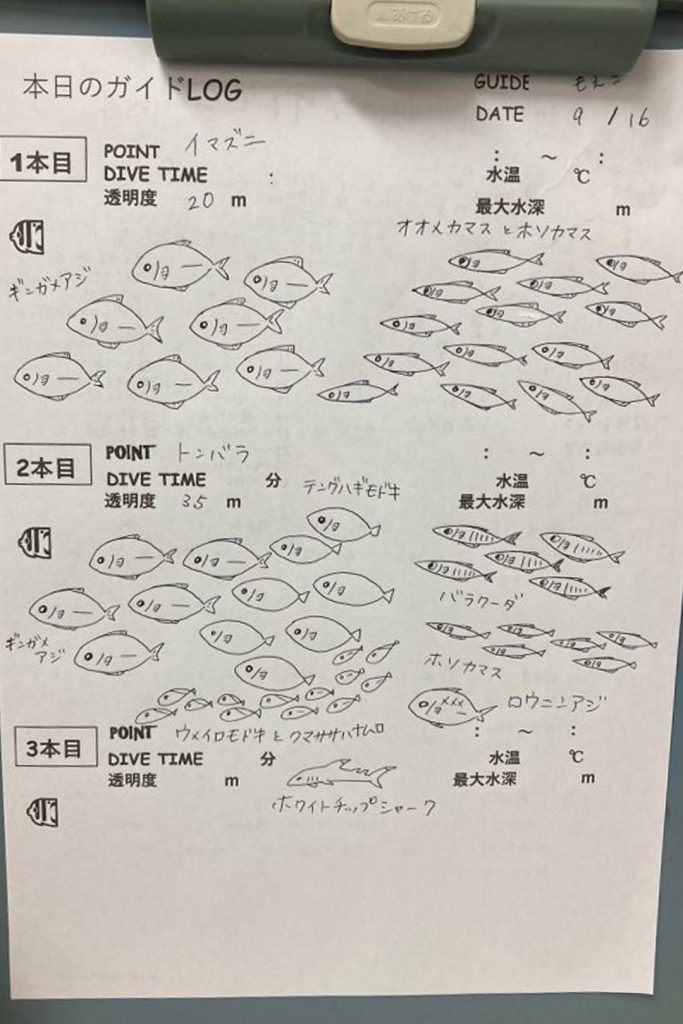 あける
本日のガイドLOG
GUIDE もえこ
DATE 9 / 16
1本目
POINT イマズニ
DIVE TIME : : ~ :
水温 ℃
透明度 20 m
最大水深 m
オオメカマスとホソカマス
ギンガメアジ
2本目
POINT トンバラ
: ~ :
DIVE TIME 分 水温 ℃
透明度 35 m 最大水深 m
テングハギモドキ
バラクーダ
ギンガメ
アジ
ホソカマス
ロウニンアジ
ウメイロモドキとクマササハナムロ
3本目
POINT
: ~ :
DIVE TIME 分 水温 ℃
透明度 m 最大水深 m
ホワイトチップシャーク